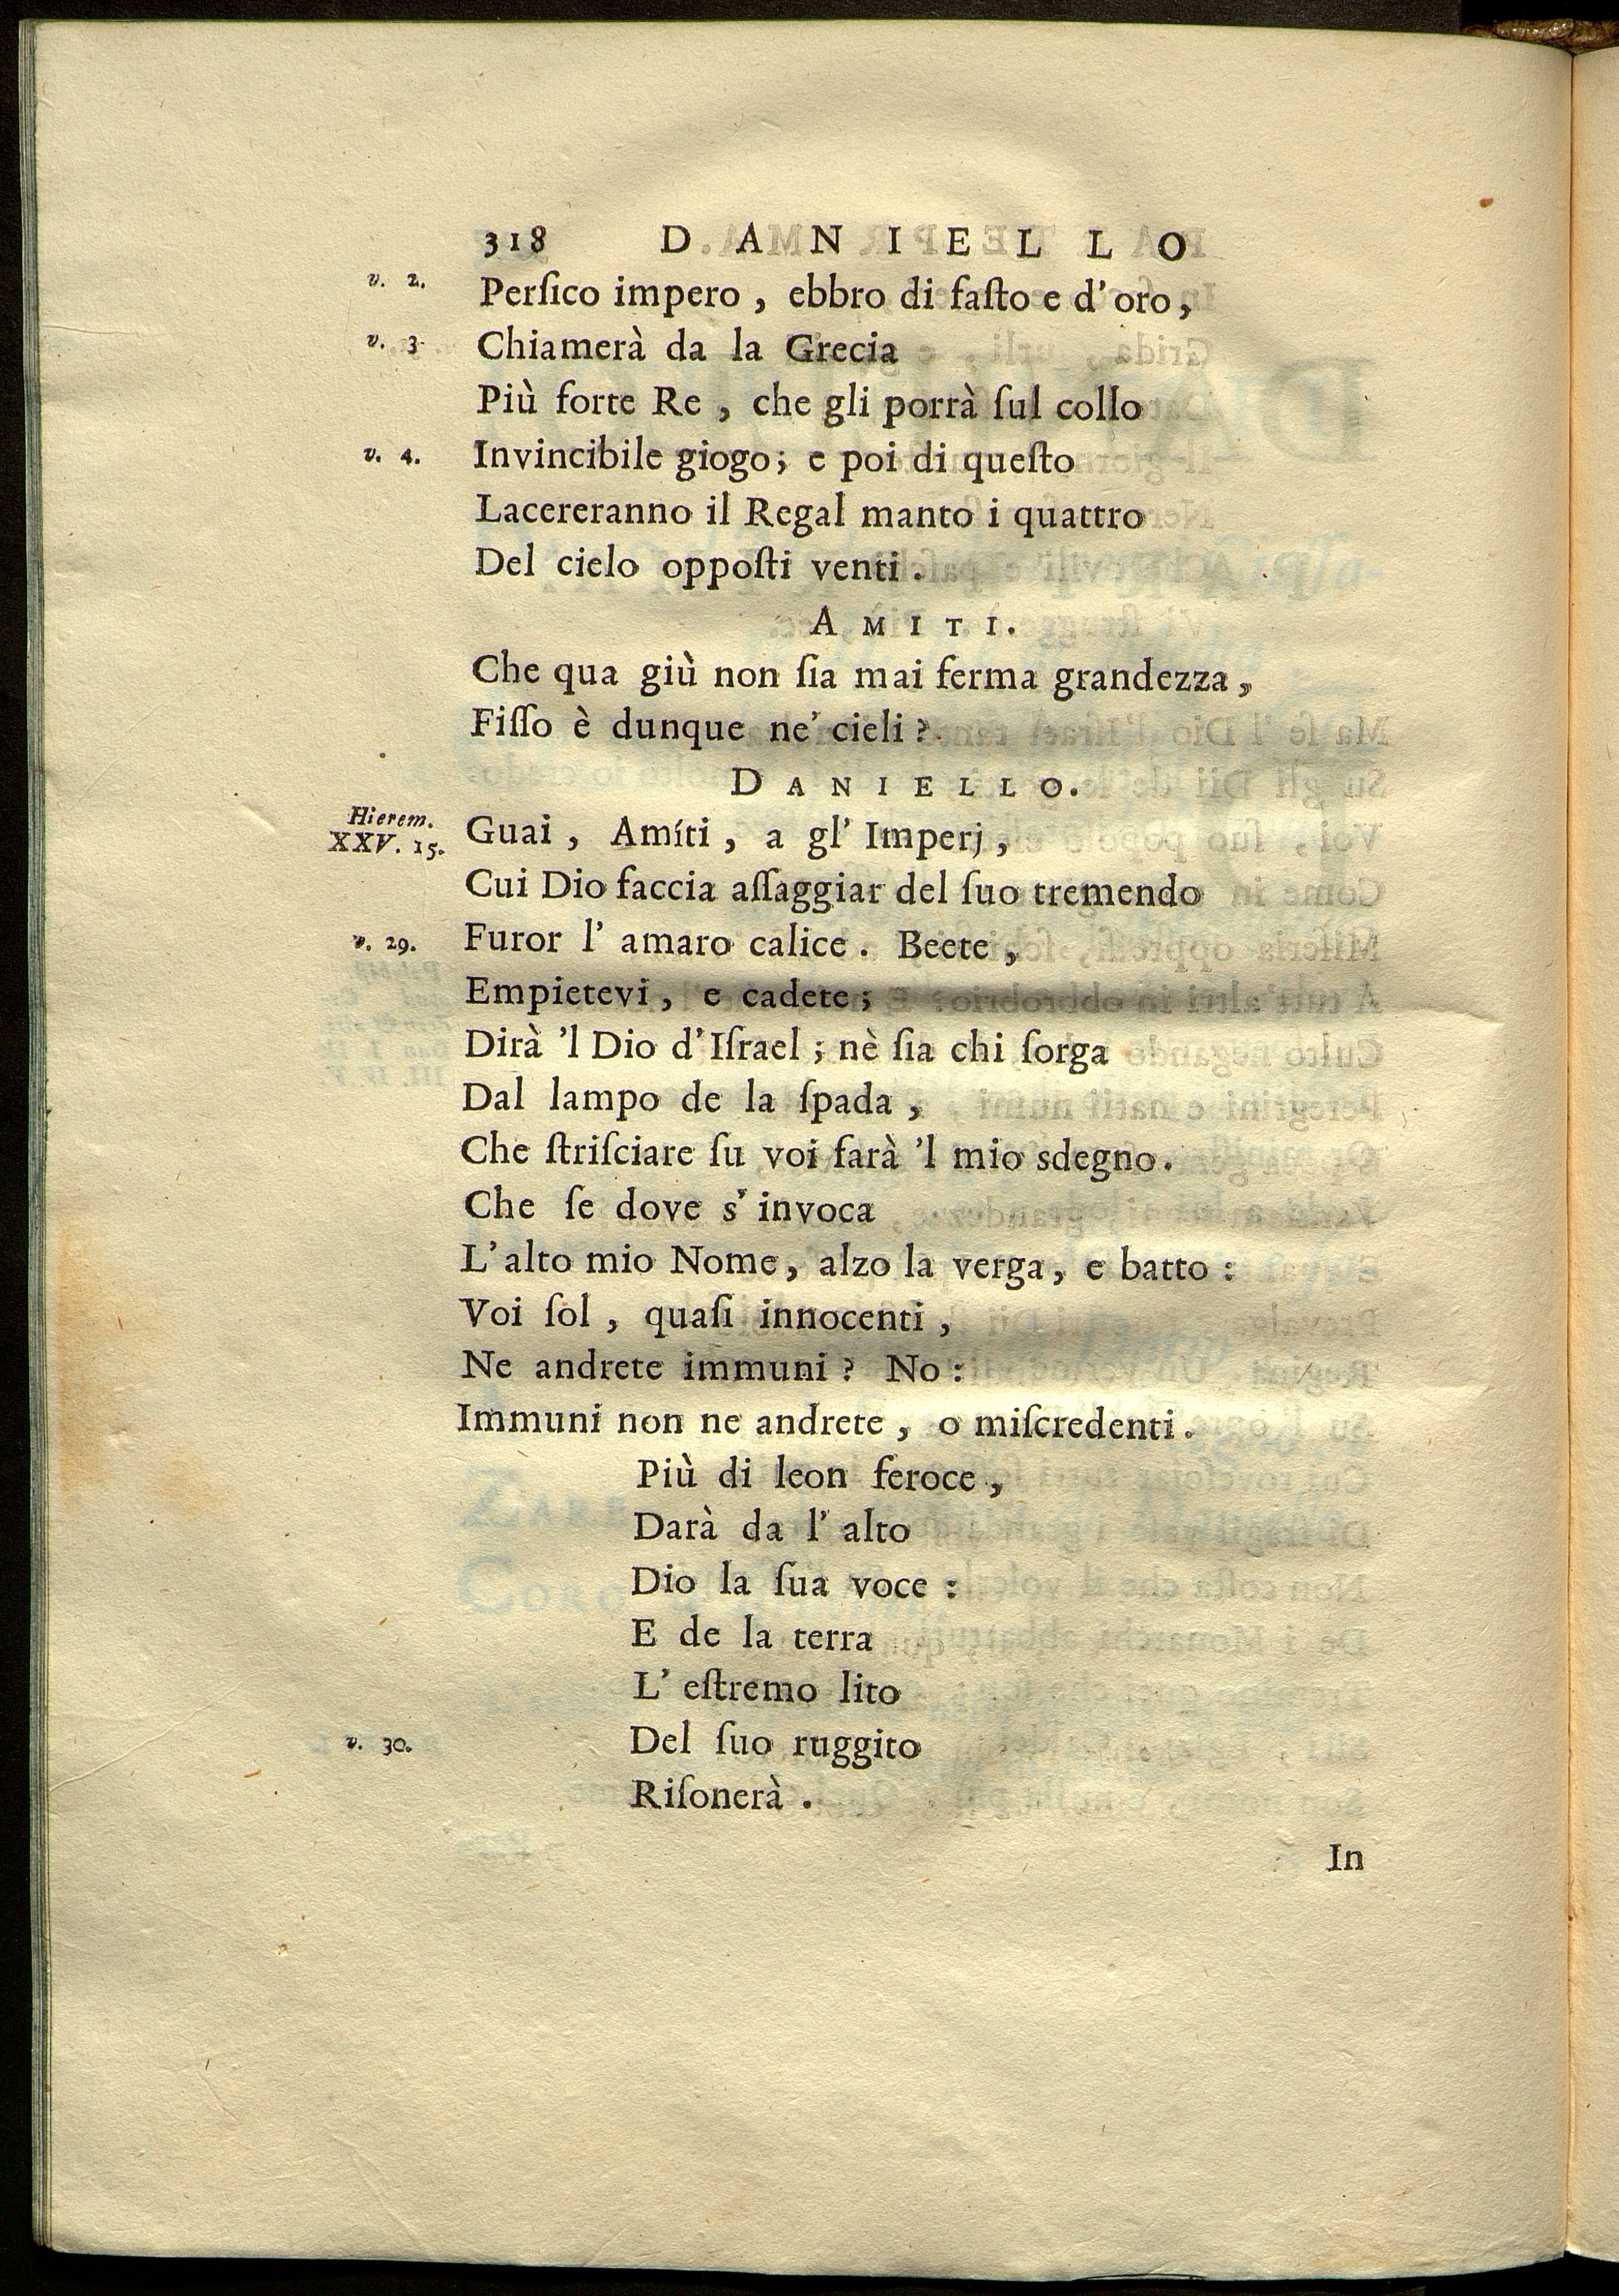 318 DANIELLO
v. 2. Perſico impero, ebbro di faſto e d'oro,
v. 3 Chiamerà da la Grecia
Più forte Re, che gli porrà ſul collo
v. 4. Invincibile giogo; e poi di queſto
Lacereranno il Regal manto i quattro
Del cielo oppoſti venti.
AMITI.
Che qua giù non ſia mai ferma grandezza,
Fiſſo è dunque ne' cieli?
DANIELLO.
Hierem. XXV. 15. Guai, Amíti, a gl' Imperj,
Cui Dio faccia aſſaggiar del ſuo tremendo
v. 29. Furor l' amaro calice. Beete,
Empietevi, e cadete;
Dirà 'l Dio d'Iſrael; nè ſia chi ſorga
Dal lampo de la ſpada,
Che ſtriſciare ſu voi farà 'l mio sdegno.
Che ſe dove s' invoca
L'alto mio Nome, alzo la verga, e batto:
Voi ſol, quaſi innocenti,
Ne andrete immuni? No:
Immuni non ne andrete, o miſcredenti.
Più di leon feroce,
Darà da l' alto
Dio la ſua voce:
E de la terra
L' eſtremo lito
v. 30. Del ſuo ruggito
Riſonerà.
In